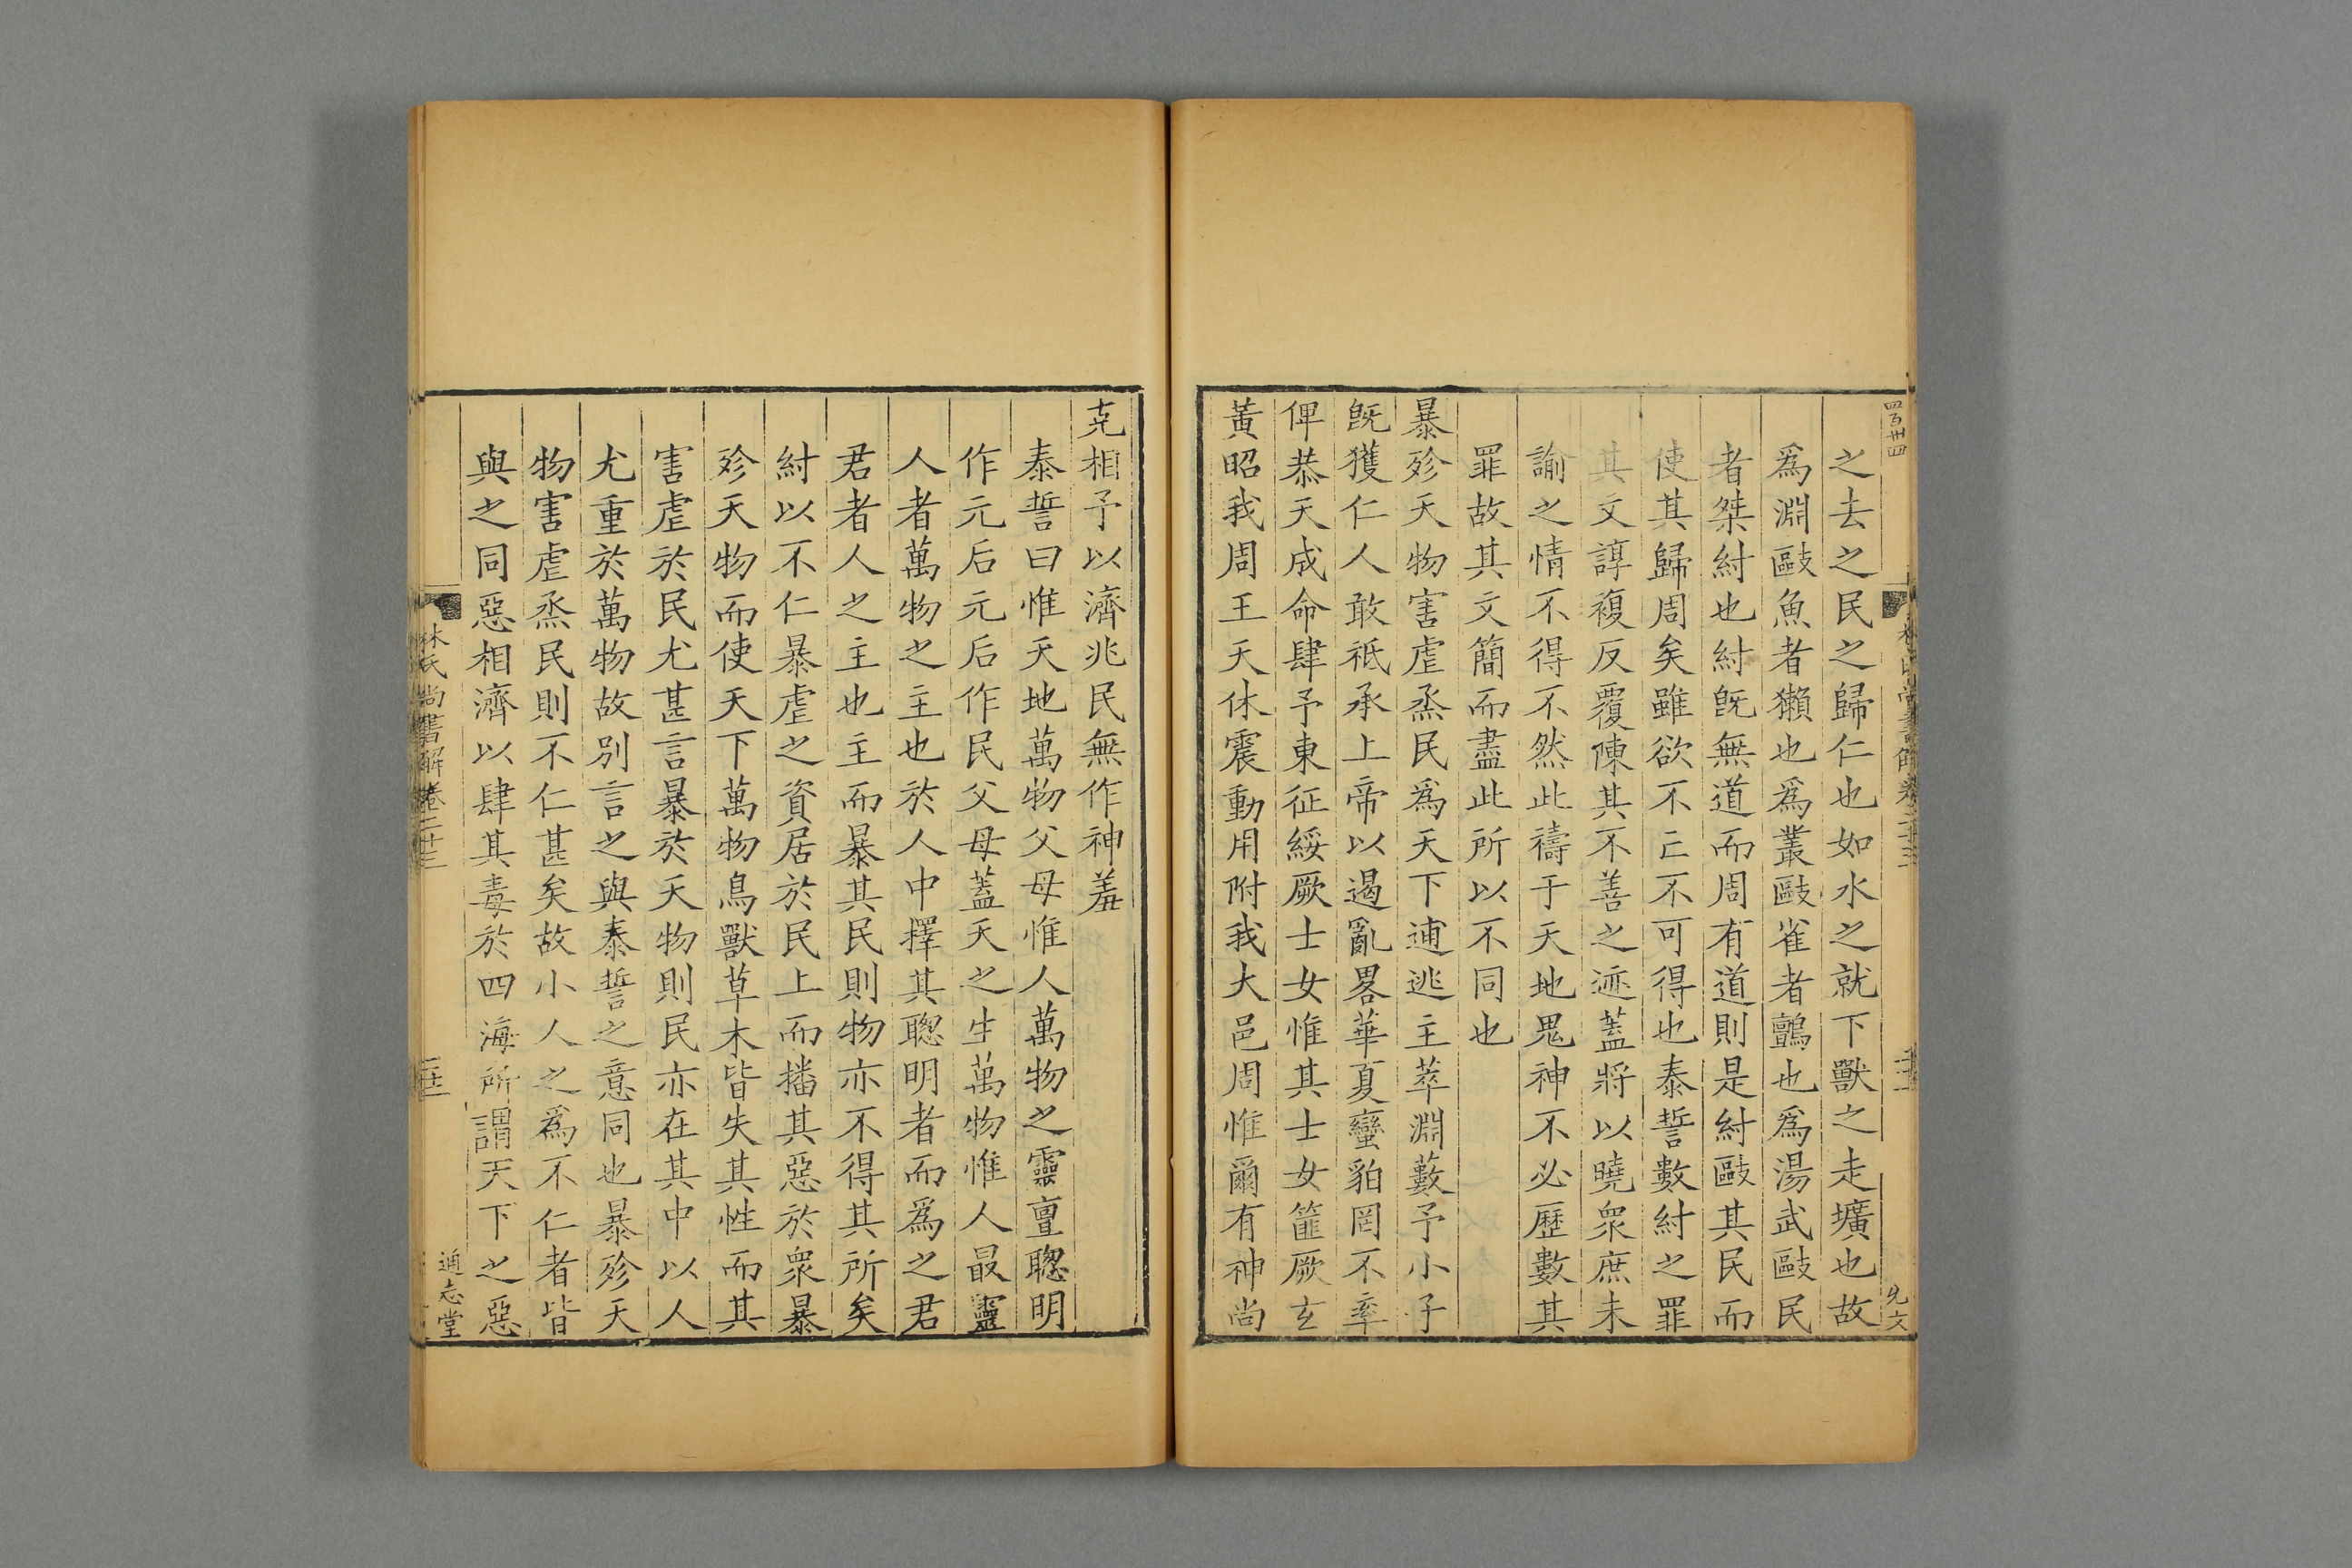 四百廿四
先文
之去之民之歸仁也如水之就下獸之走壙也故
爲淵敺魚者獺也爲叢敺雀者鸇也爲湯武敺民
者桀紂也紂旣無道而周有道則是紂敺其民而
使其歸周矣雖欲不亡不可得也泰誓數紂之罪
其文諄複反覆陳其不善之迹蓋將以曉衆庶未
諭之情不得不然此禱于天地鬼神不必歷數其
罪故其文簡而盡此所以不同也
暴殄天物害虐烝民爲天下逋逃主萃淵藪予小子
旣獲仁人敢祗承上帝以遏亂畧華夏蠻貊罔不率
俾恭天成命肆予東征綏厥士女惟其士女篚厥玄
黃昭我周王天休震動用附我大邑周惟爾有神尚
克相予以濟兆民無作神羞
泰誓曰惟天地萬物父母惟人萬物之靈亶聰明
作元后元后作民父母蓋天之生萬物惟人最靈
人者萬物之主也於人中擇其聰明者而爲之君
君者人之主也主而暴其民則物亦不得其所矣
紂以不仁暴虐之資居於民上而播其惡於衆暴
殄天物而使天下萬物鳥獸草木皆失其性而其
害虐於民尤甚言暴於天物則民亦在其中以人
尤重於萬物故別言之與泰誓之意同也暴殄天
物害虐烝民則不仁甚矣故小人之爲不仁者皆
與之同惡相濟以肆其毒於四海所謂天下之惡
林氏尚書解卷二十三
通志堂